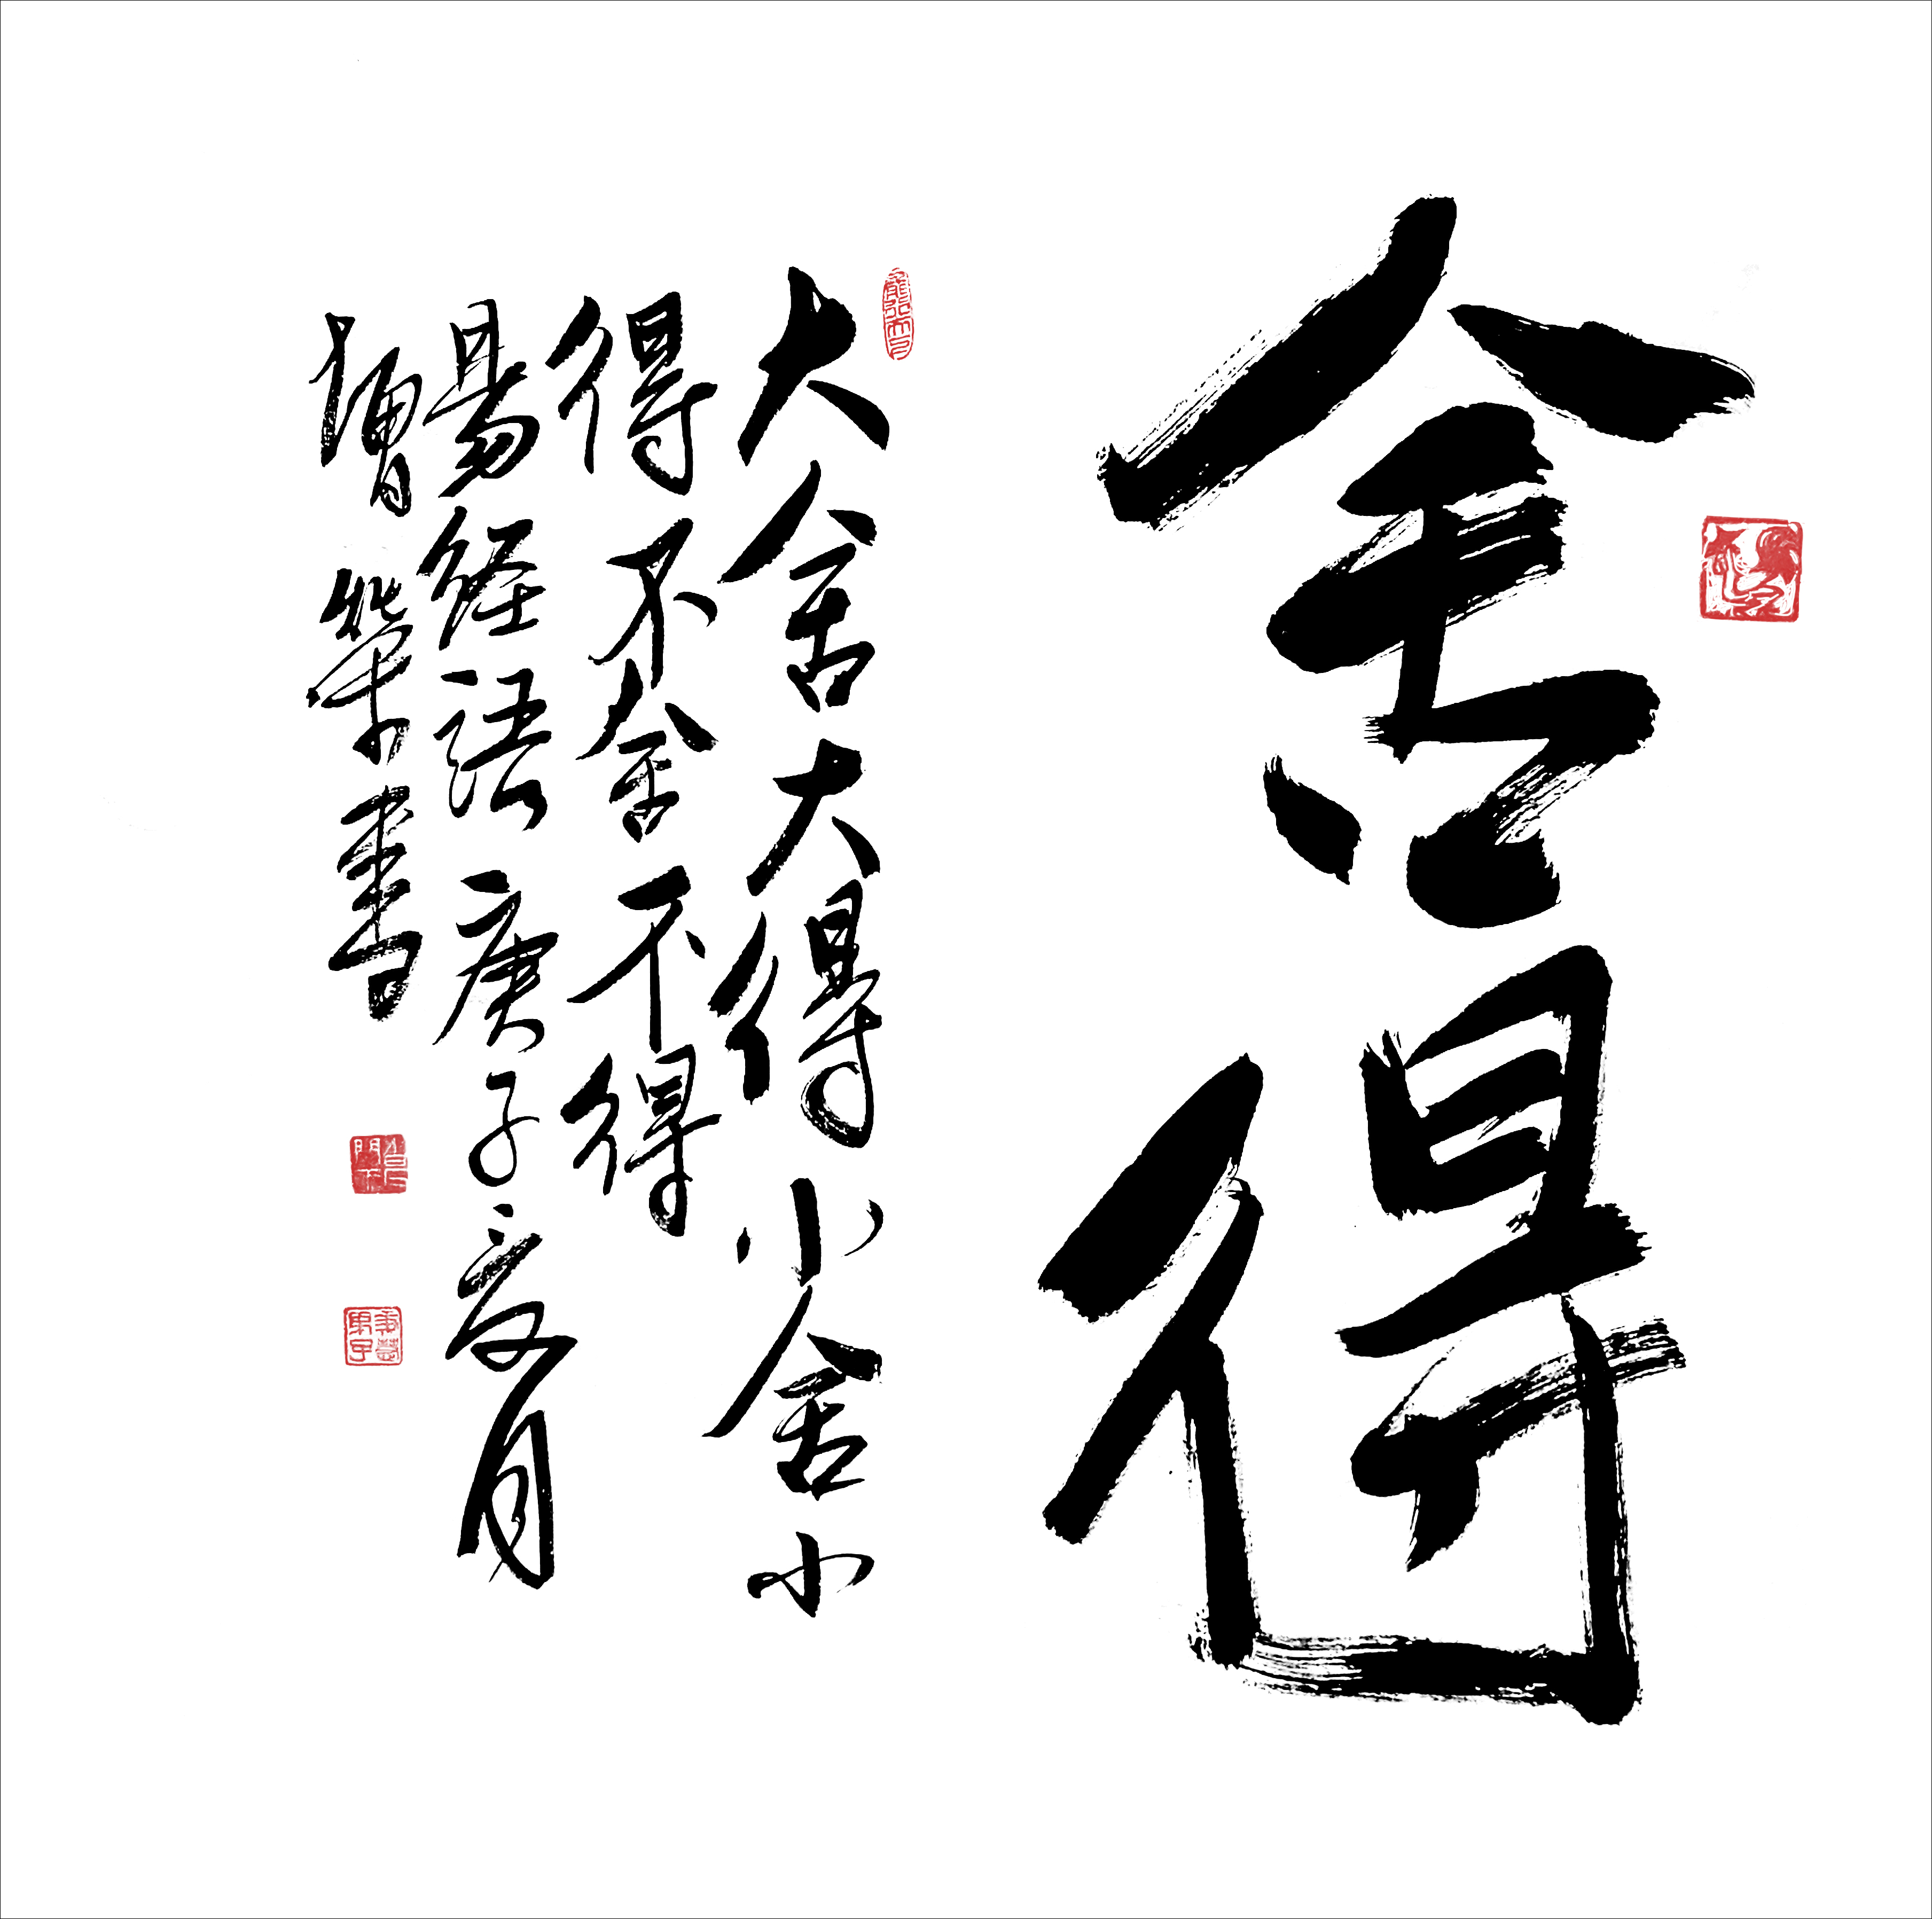 舍得
大舍大得小舍小
得不舍不得
易经语庚子夏月
华书